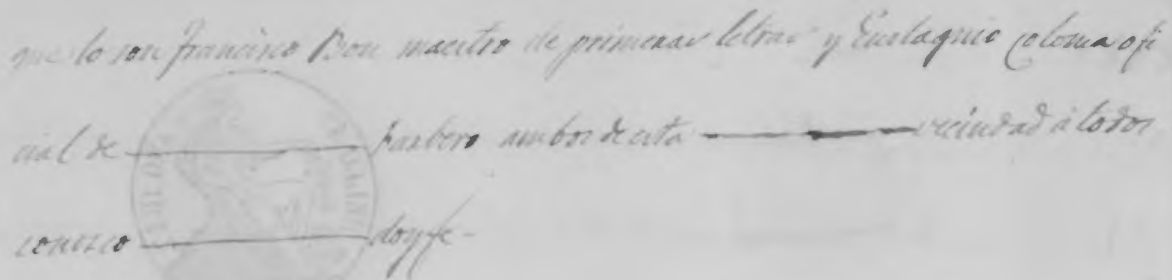 que lo son Francisco Bon maestro de primeras letras y Eustaquio Coloma ofi
cial de barbero ambos de esta vecindad á todos
conozco doy fe